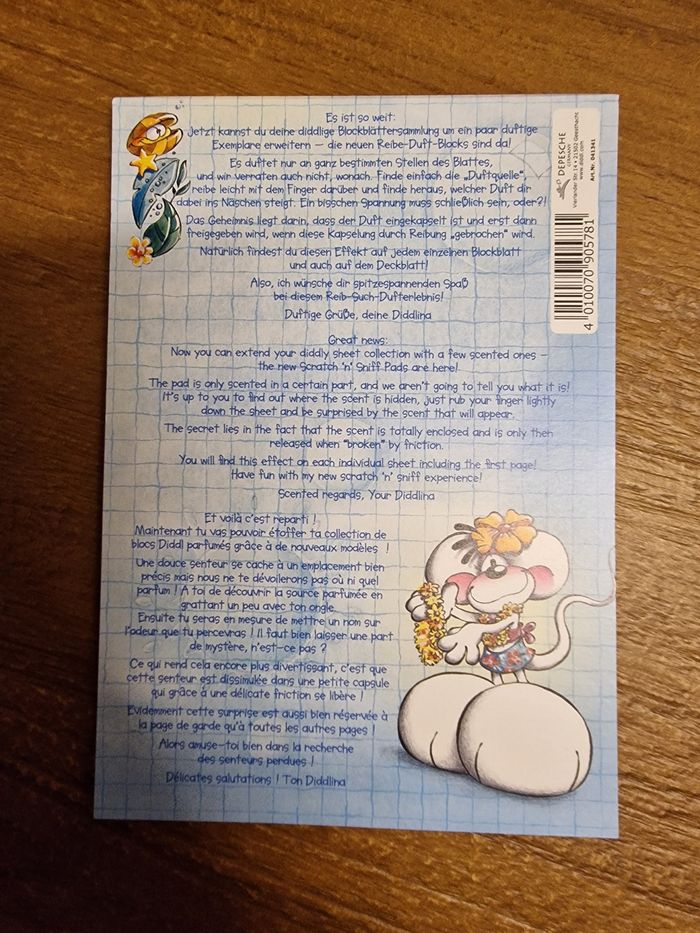 Es ist so weit:
Jetzt kannst du deine diddlige Blockblättersammlung um ein paar duftige
Exemplare erweitern – die neuen Reibe-Duft-Blocks sind da!
Es duftet nur an ganz bestimmten Stellen des Blattes,
und wir verraten auch nicht, wonach. Finde einfach die „Duftquelle",
reibe leicht mit dem Finger darüber und finde heraus, welcher Duft dir
dabei ins Näschen steigt. Ein bisschen Spannung muss schließlich sein, oder?!
Das Geheimnis liegt darin, dass der Duft eingekapselt ist und erst dann
freigegeben wird, wenn diese Kapselung durch Reibung „gebrochen" wird.
Natürlich findest du diesen Effekt auf jedem einzelnen Blockblatt
und auch auf dem Deckblatt!
Also, ich wünsche dir spitzespannenden Spaß
bei diesem Reib-Such-Dufterlebnis!
Duftige Grüße, deine Diddlina
DEPESCHE
GERMANY
Vierlander Str. 14 • 21502 Geesthacht
www.diddl.com
Art.Nr. 041341
4 010070 905781
Great news:
Now you can extend your diddly sheet collection with a few scented ones –
the new Scratch 'n' Sniff Pads are here!
The pad is only scented in a certain part, and we aren't going to tell you what it is!
It's up to you to find out where the scent is hidden, just rub your finger lightly
down the sheet and be surprised by the scent that will appear.
The secret lies in the fact that the scent is totally enclosed and is only then
released when "broken" by friction.
You will find this effect on each individual sheet including the first page!
Have fun with my new scratch 'n' sniff experience!
Scented regards, Your Diddlina
Et voilà c'est reparti !
Maintenant tu vas pouvoir étoffer ta collection de
blocs Diddl parfumés grâce à de nouveaux modèles !
Une douce senteur se cache à un emplacement bien
précis mais nous ne te dévoilerons pas où ni quel
parfum ! A toi de découvrir la source parfumée en
grattant un peu avec ton ongle.
Ensuite tu seras en mesure de mettre un nom sur
l'odeur que tu percevras ! Il faut bien laisser une part
de mystère, n'est-ce pas ?
Ce qui rend cela encore plus divertissant, c'est que
cette senteur est dissimulée dans une petite capsule
qui grâce à une délicate friction se libère !
Evidemment cette surprise est aussi bien réservée à
la page de garde qu'à toutes les autres pages !
Alors amuse-toi bien dans la recherche
des senteurs perdues !
Délicates salutations ! Ton Diddlina